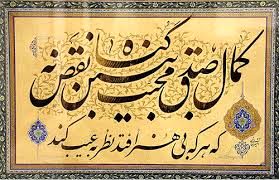 کمال صدق محبت ببین نه نقص گناه
که هر که بی هنر افتد نظر به عیب کند